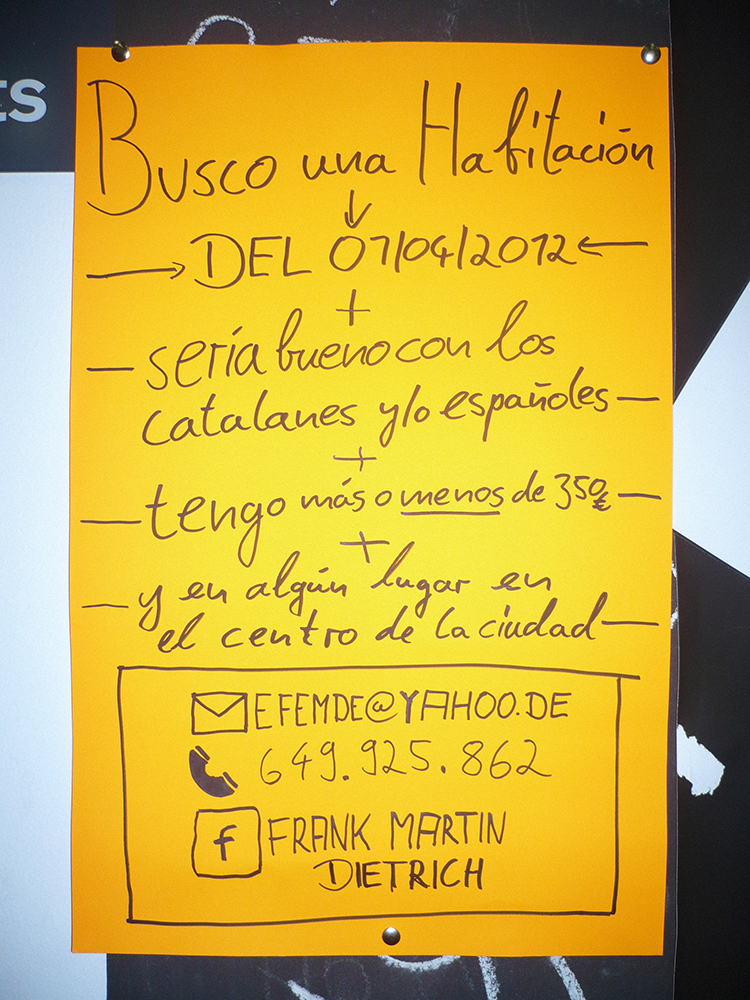 ES
Busco una Habitación
DEL 01/04/2012
+
sería bueno con los
catalanes y/o españoles
+
tengo más o menos de 350€
+
y en algún lugar en
el centro de la ciudad
EFEMDE@YAHOO.DE
649.925.862
f FRANK MARTIN
DIETRICH